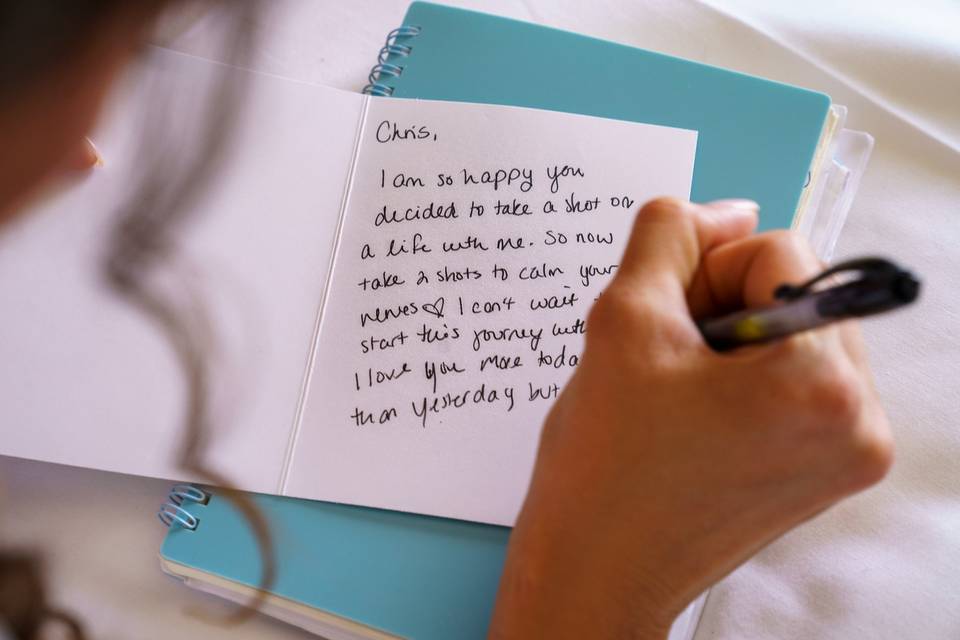 Chris,
I am so happy you
decided to take a shot on
a life with me. So now
take 2 shots to calm your
nerves♡ I can't wait
start this journey with
I love you more toda
than yesterday but